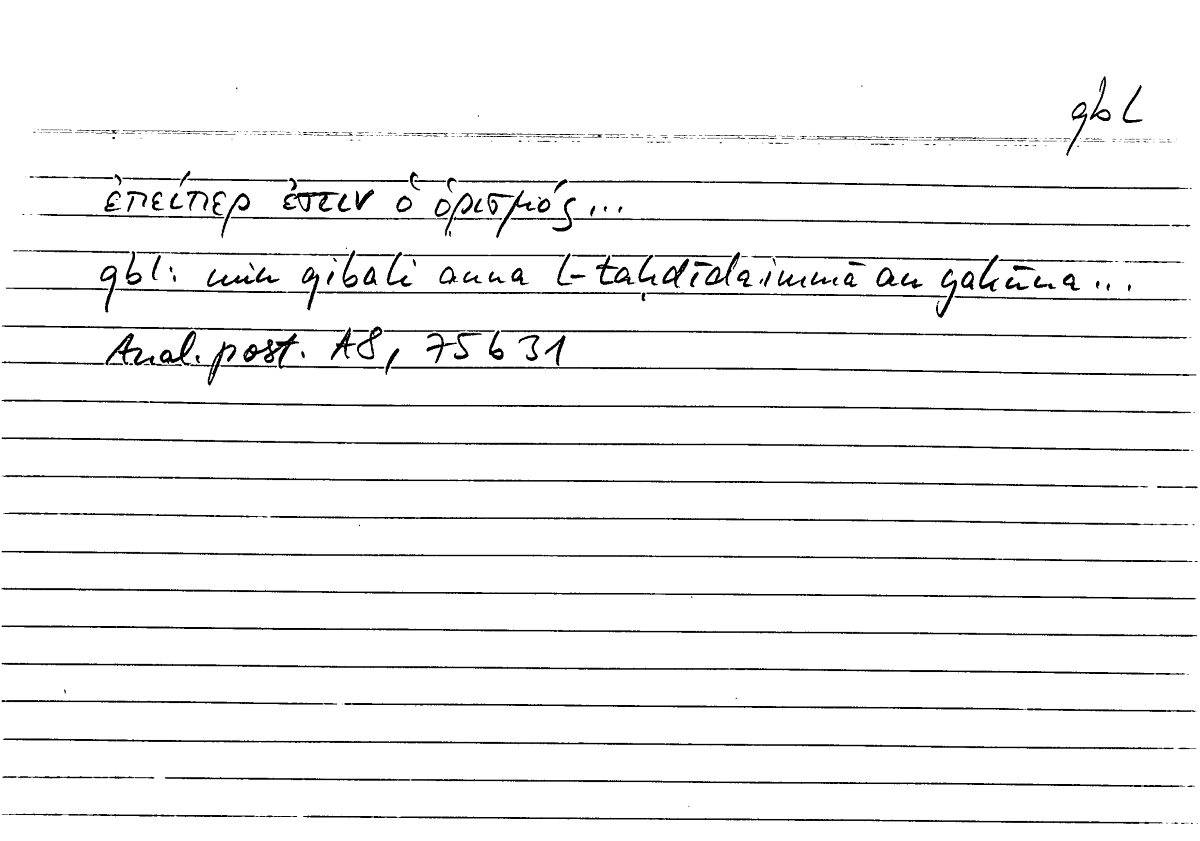 qbl
ἐπείπερ ἐστιν ὁ ὁρισμός...
qbl: min qibali anna l-taḥdīda immā an yakūna...
Anal. post. A8, 75 b 31